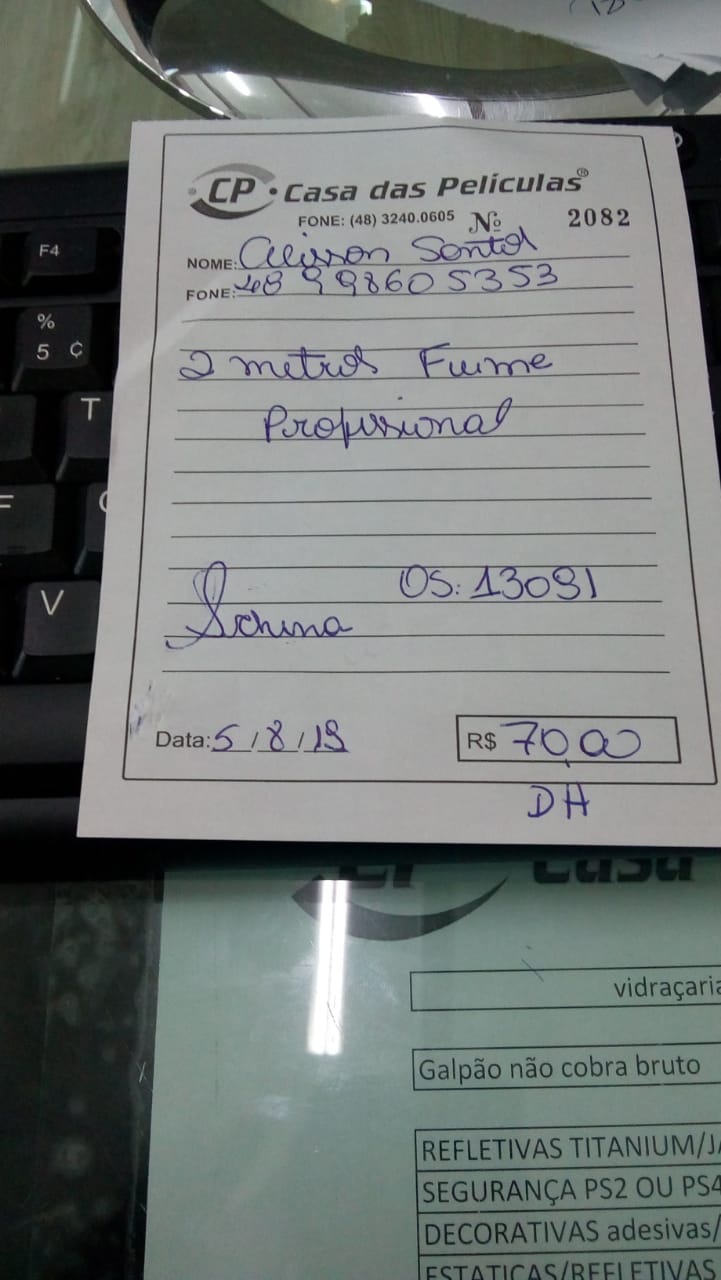 CP • Casa das Películas®
FONE: (48) 3240.0605 Nº 2082
NOME: Alisson Santos
FONE: 48 9 9860 5353
2 metros Fume
Profisional
OS: 13091
Data: 5 / 8 / 19 R$ 70,00
DH
F4
%
5 ¢
T
F
V
CP Casa
vidraçaria
Galpão não cobra bruto
REFLETIVAS TITANIUM/JA
SEGURANÇA PS2 OU PS4
DECORATIVAS adesivas/
ESTATICAS/REFLETIVAS